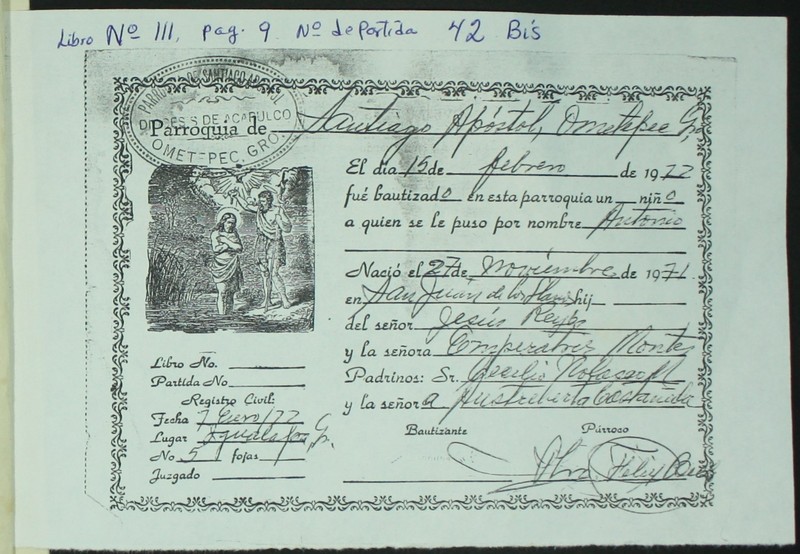 Libro Nº III, pag. 9 Nº de Partida 42 Bis
PARROQUIA DE SANTIAGO APOSTOL
DIOCESIS DE ACAPULCO
OMETEPEC, GRO.
Parroquia de Santiago Apóstol, Ometepec Gro.
El dia 15 de febrero de 1972
fué bautizado en esta parroquia un niño
a quien se le puso por nombre Antonio
Nació el 27 de Noviembre de 1971
en San Juan de los hij
del señor Jesús Reyes
y la señora Montes
Padrinos: Sr. Cecilio
y la señora Castañeda
Libro No.
Partida No
Registro Civil:
Fecha 7 Enero/72
Lugar Igualapa, Gr.
No 5 fojas
Juzgado
Bautizante Párroco